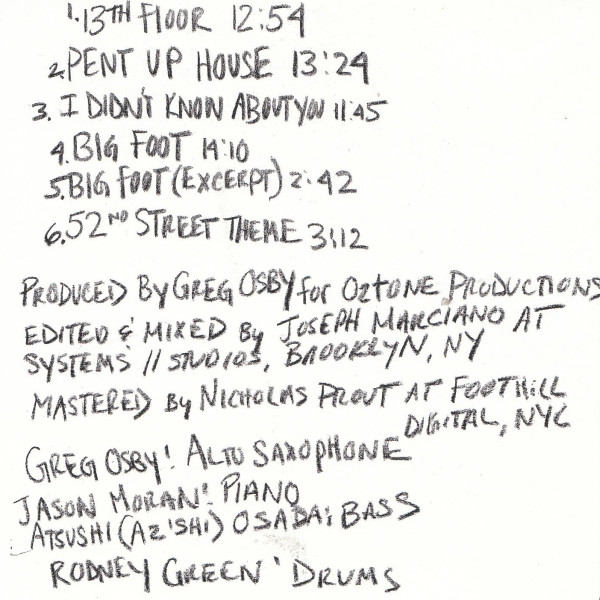 1. 13TH FLOOR 12:54
2. PENT UP HOUSE 13:24
3. I DIDN'T KNOW ABOUT YOU 11:45
4. BIG FOOT 14:10
5. BIG FOOT (EXCERPT) 2:42
6. 52ND STREET THEME 3:12
PRODUCED BY GREG OSBY for OZTONE PRODUCTIONS
EDITED & MIXED By JOSEPH MARCIANO AT
SYSTEMS // STUDIOS, BROOKLYN, NY
MASTERED By NICHOLAS PROUT AT FOOTHILL
DIGITAL, NYC
GREG OSBY: ALTO SAXOPHONE
JASON MORAN: PIANO
ATSUSHI (AZ'SHI) OSADA: BASS
RODNEY GREEN: DRUMS